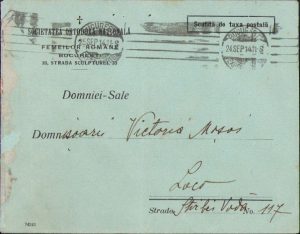 SOCIETATEA ORTODOXA NATIONALA
A
FEMEILOR ROMANE
BUCUREȘTI
Scutită de taxa poștală
24 SEP
Domniei-Sale
Domnișoarei Victoria Moșoi
Loco
Strada Știrbei Vodă No. 117